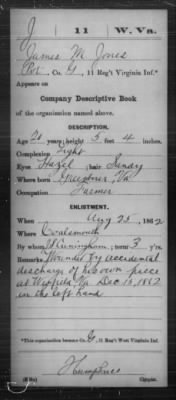 J 11 W. Va.
James M. Jones
Pvt., Co. G, 11 Reg't Virginia Inf.*
Appears on
Company Descriptive Book
of the organization named above.
DESCRIPTION.
Age 20 years; height 5 feet 4 inches.
Complexion Light
Eyes Hazel; hair Sandy
Where born Va
Occupation Farmer
ENLISTMENT.
When Aug 25, 1862
Where Coalsmouth
By Cunningham; term 3 y'rs.
Remarks Wounded by accidental
discharge of his own piece
at Winfield Va Dec 15, 1862
in the left hand
*This organization became Co. G, 11 Reg't West Virginia Inf.
Humphries
Copyist.